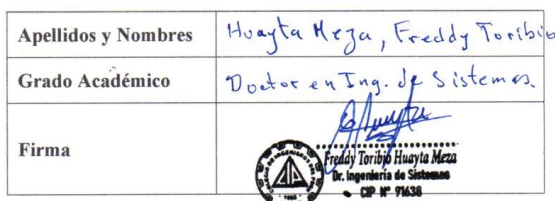 Apellidos y Nombres Huayta Meza, Freddy Toribio
Grado Académico Doctor en Ing. de Sistemas.
Firma
Freddy Toribio Huayta Meza
Dr. Ingeniería de Sistemas
CIP N° 91638